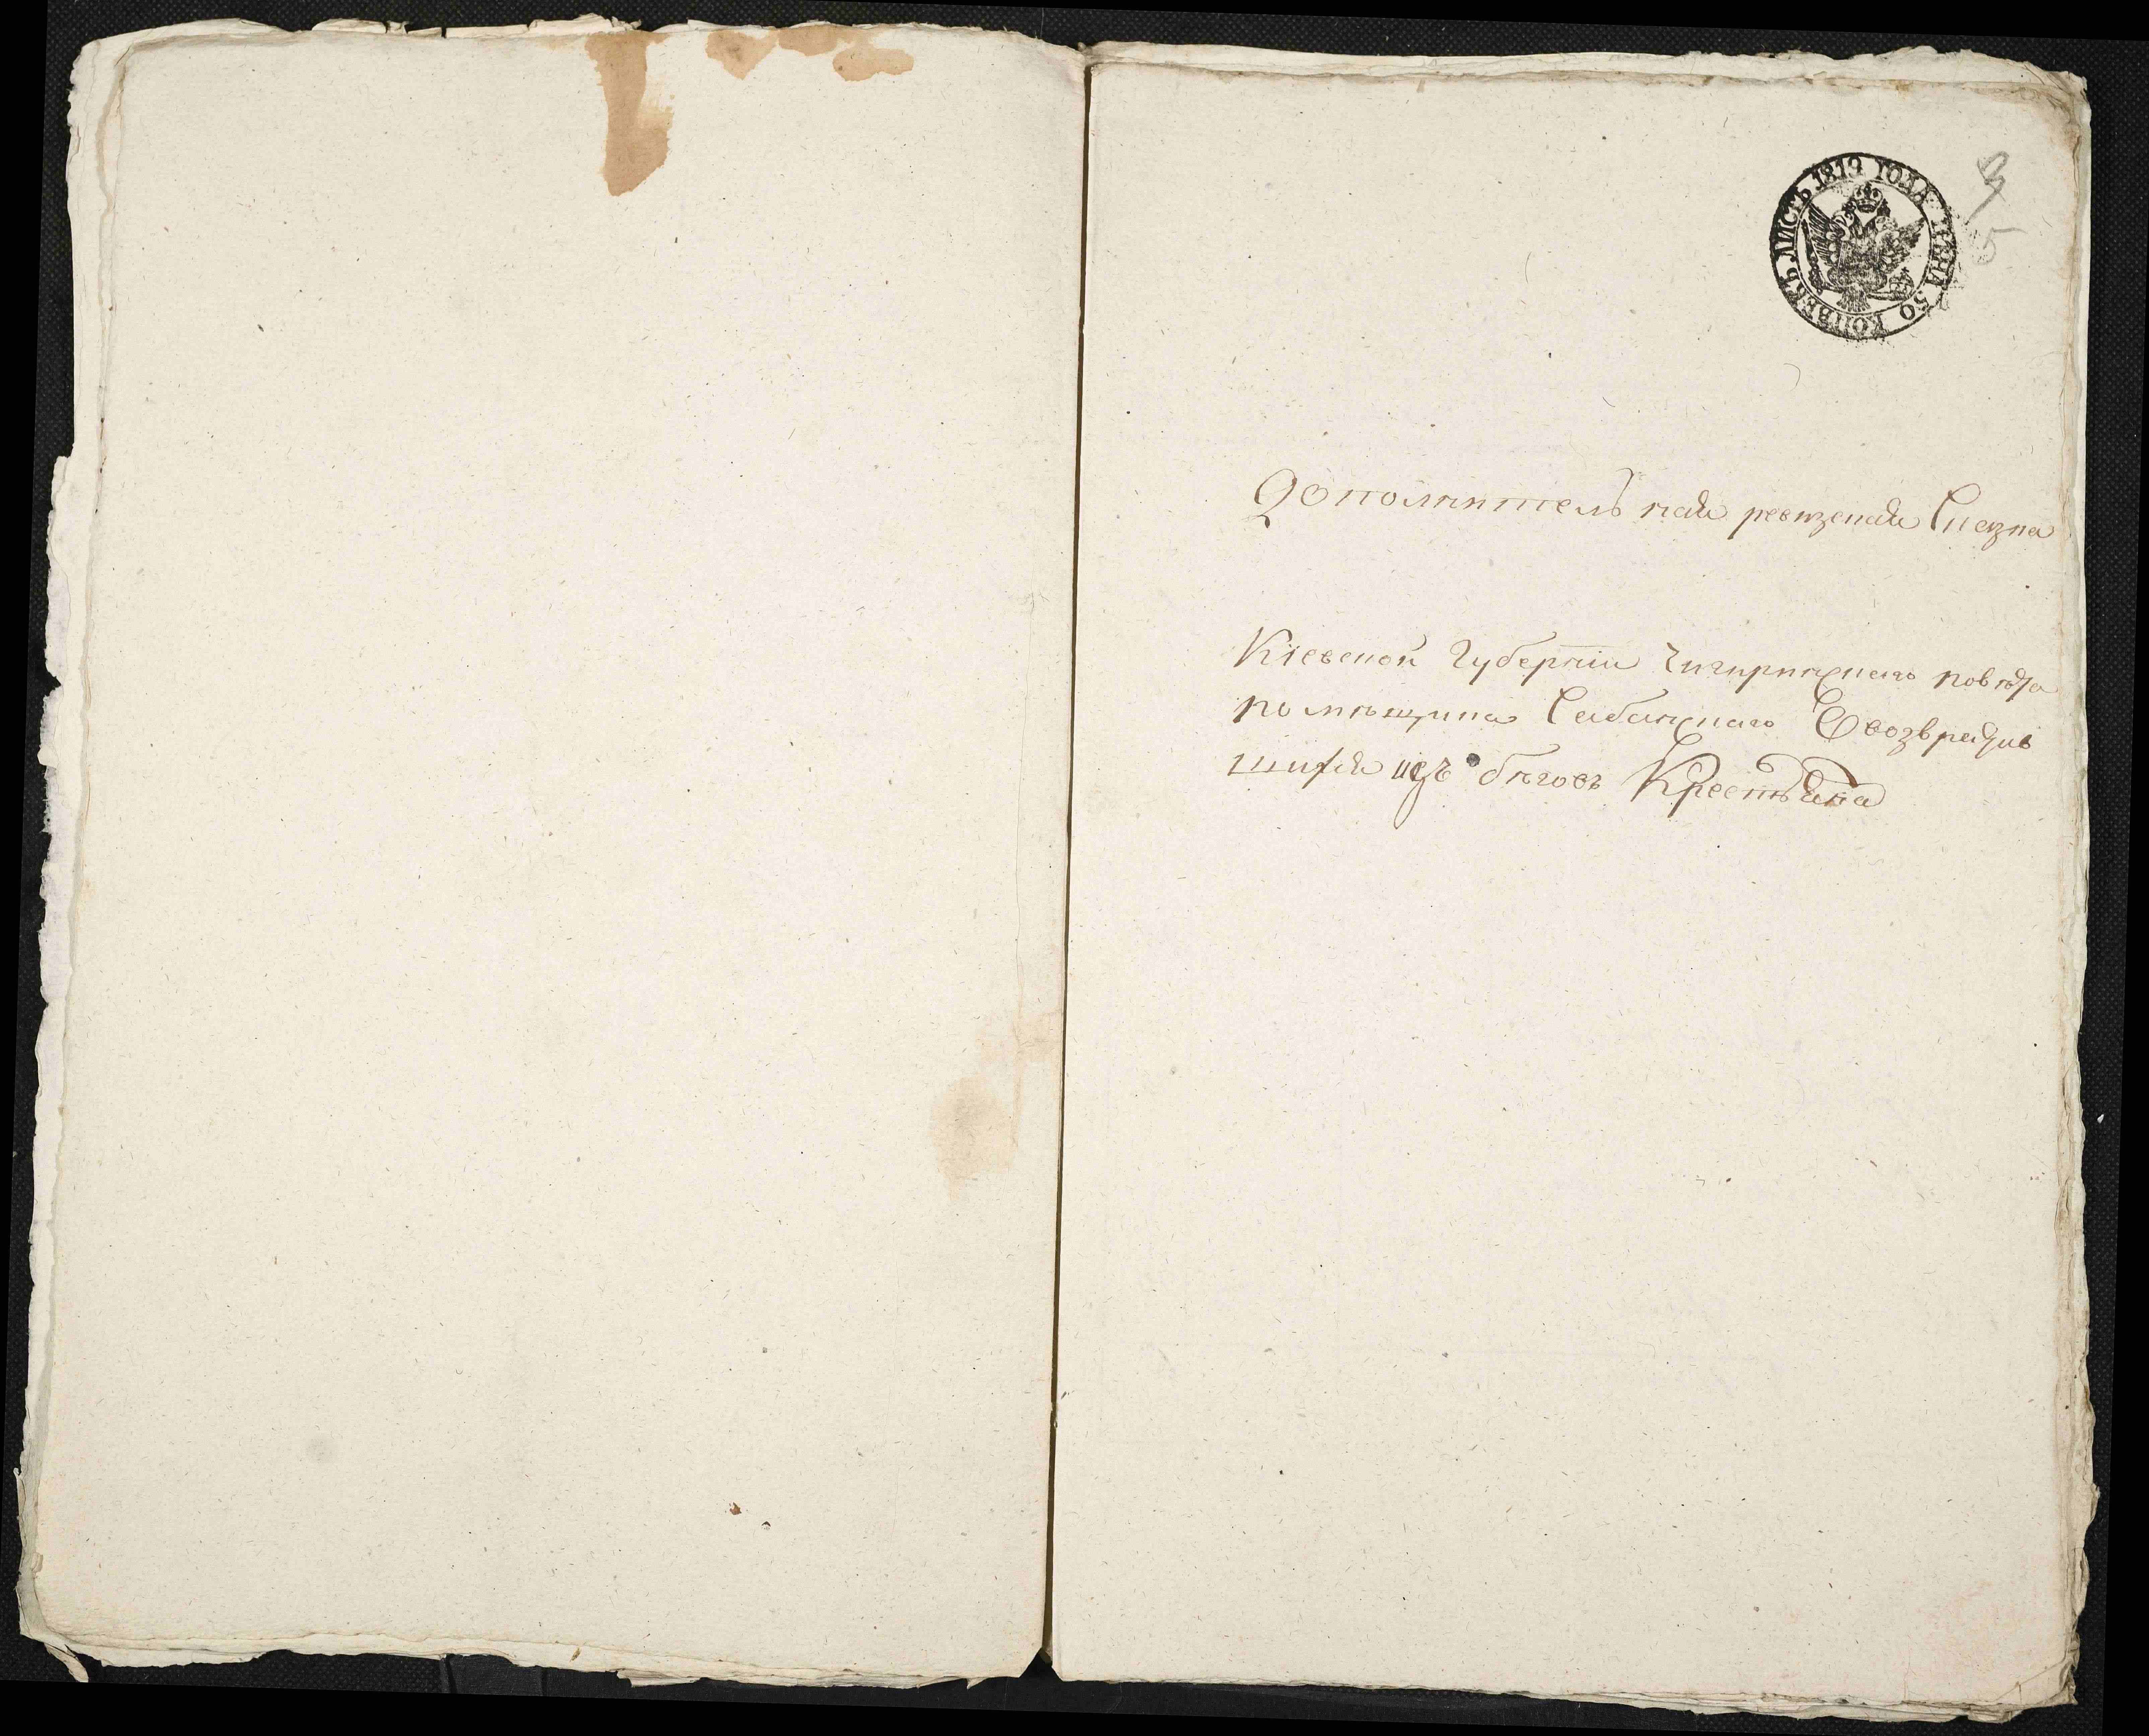 ЛИСТЪ 1819 ГОДА ЦѢНА 50 КОПѢЕКЪ
3
5
Дополнительная ревизская Сказка
Кіевской Губерніи Чигиринскаго повѣта
помѣщика О возвратив
шихся изъ бѣговъ Крестьяна